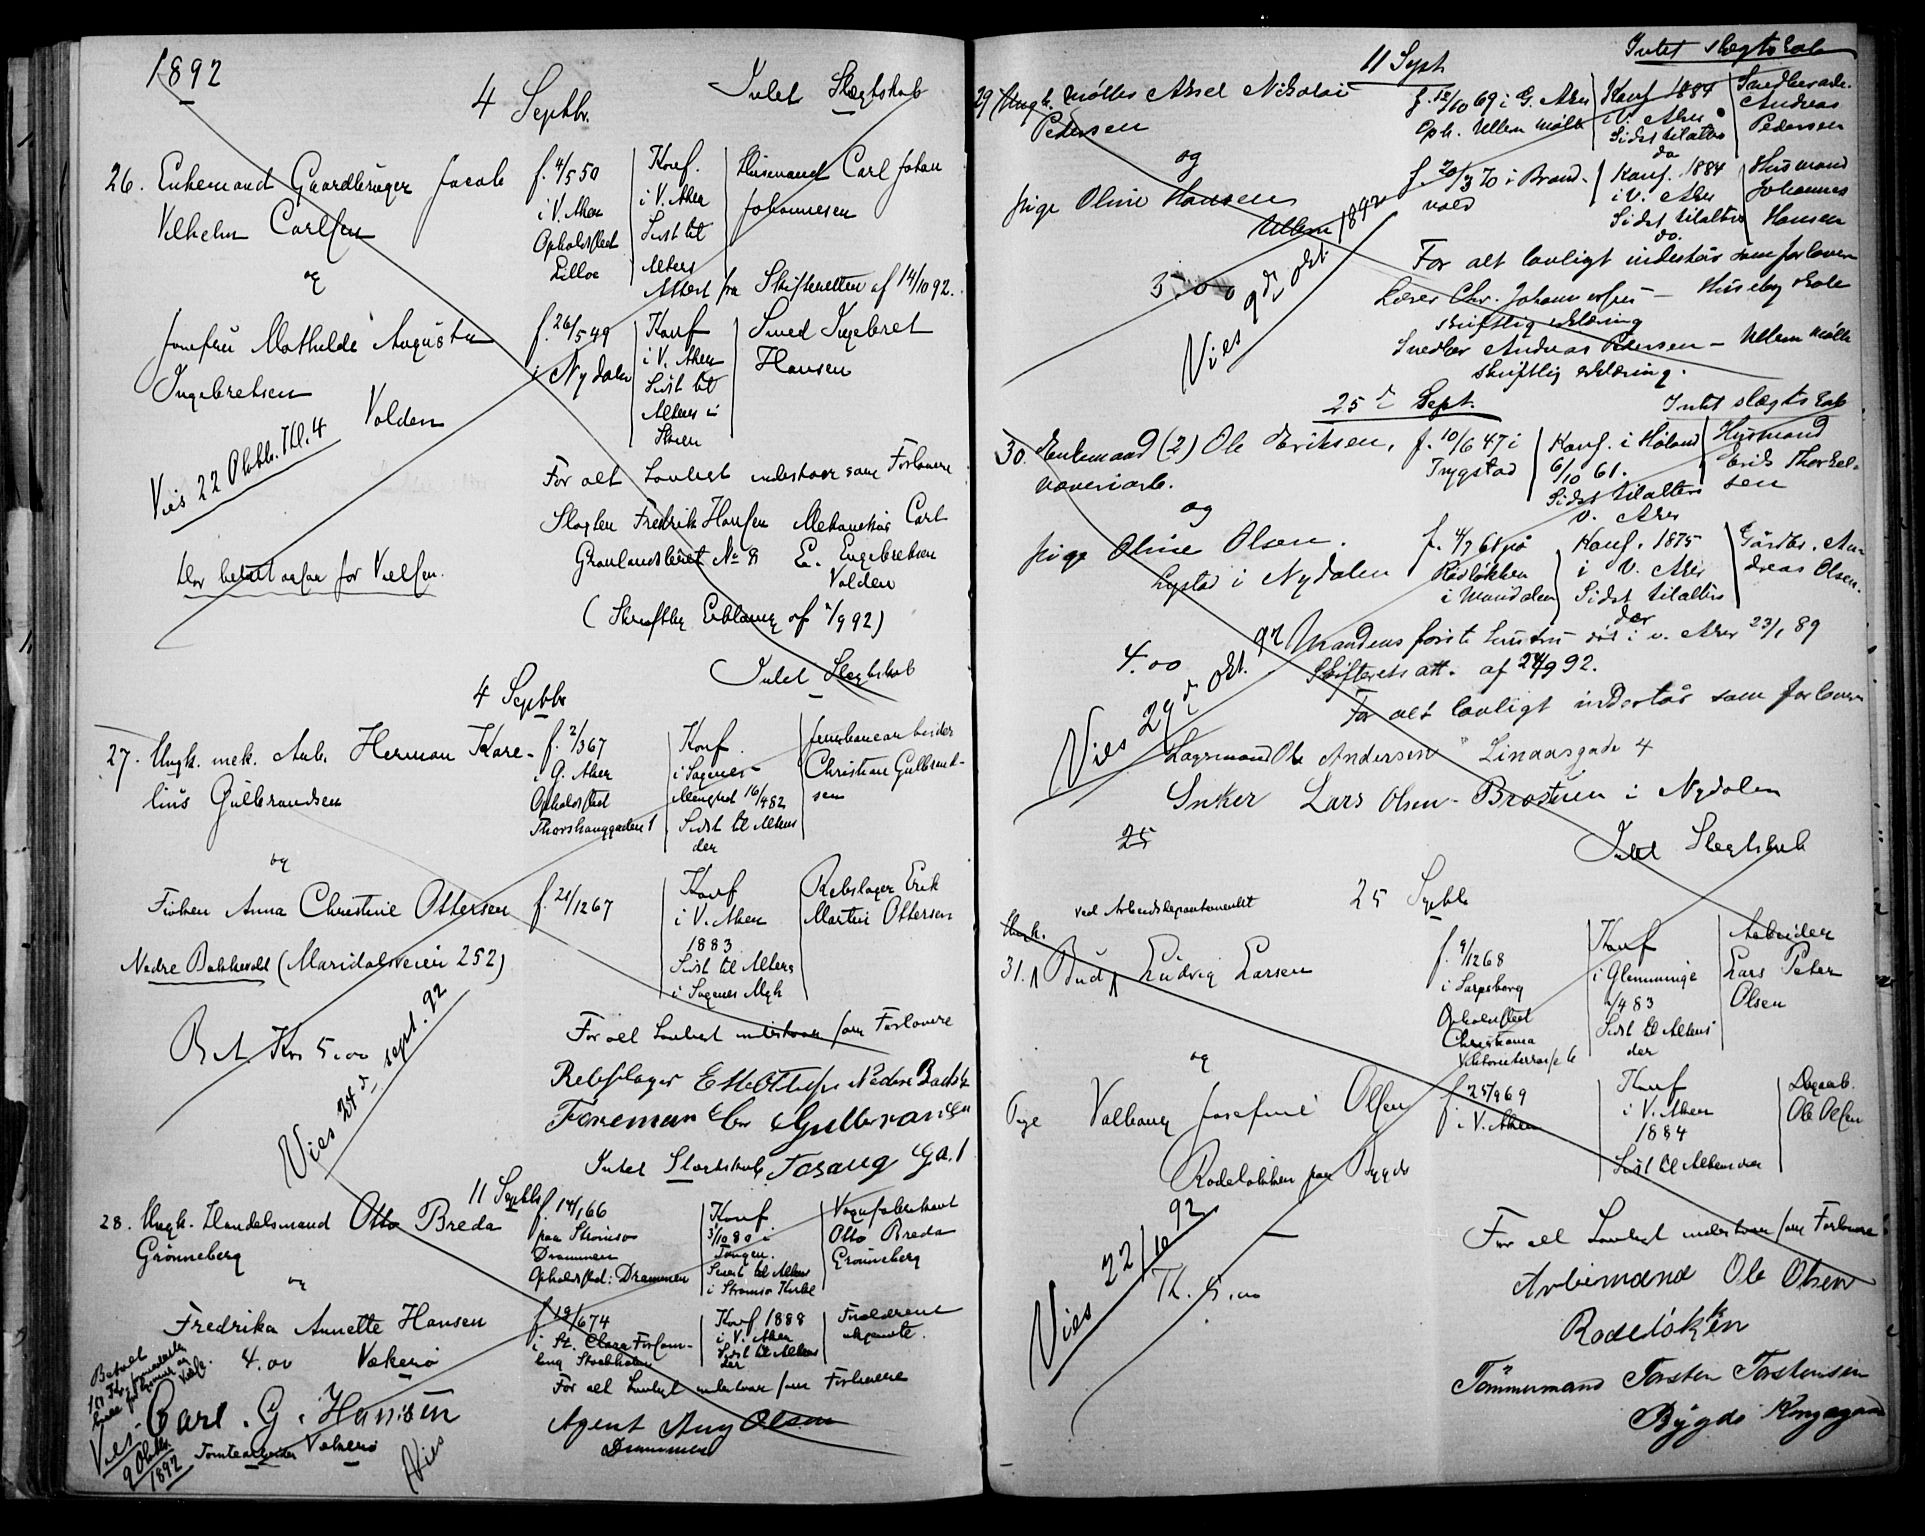 1892
4 Septbr.
Intet Slægtskab
26. Enkemand Gaardbruger Jacob
Vilhelm Carlsen
f. 4/5 50
i V. Aker
Opholdssted
Lilloe
Konf.
i V. Aker
Sidst til
Alters
Husmand Carl Johan
Johannesen
Attest fra Skifteretten af 14/10 92.
og
Jomfru Mathilde Augusta
Ingebretsen
Volden
f. 26/5 49
i Nydalen
Konf
i V. Aker
Sidst til
Alters i
Smed Ingebret
Hansen
Vies 22 Oktbr. Kl. 4
For alt Lovligt indestaar som Forlovere
Slagter Fredrik Hansen Mekanikus Carl
Grønlandsleret No 8 E. Engebretsen
Volden
(Skriftlig Erklæring af /9 92)
Har betalt for Vielsen.
4 Septbr
Intet Slegtskab
27. Ungk. mek. Arb. Herman Kare-
lius Gulbrandsen
f. 2/3 67
i G. Aker
Opholdssted
Thorshauggaden 1
Konf.
i Sagenes
Menighed 16/4 82
Sidst til Alters
der
Jernbanearbeider
Christian Gulbrand-
sen
og
Frøken Anna Christine Ottersen
Nedre Bakkevold (Maridalsveien 252)
f. 21/12 67
Konf
i V. Aker
1883
Sidst til Alters
i Sagenes Mgh
Rebslager Erik
Martin Ottersen
Bet Kr 5.00
Vies 24d. sept. 92
For alt Lovligt indestaar som Forlovere
Rebslager
Foreman Chr Gulbransen
Intet Slægtskab Torsaug Ga. 1
11 Septbr
28. Ungk. Handelsmand Otto Breda
Grönneberg
f. 14/1 66
paa Strömsø
Drammen
Opholdssted: Drammen
Konf.
3/10 80 i
Tangen.
Sidst til Alters
i Strømsø Kirke
Vognfabrikant
Otto Breda
Grönneberg
og
Fredrika Annette Hansen
4.00 Vækerø
f. 19/6 74
i St. Clara Forsam-
ling Stockholm
Konf 1888
i V. Aker
Sidst til Alters
der
Forældrene
ukjendte.
Betalt
For alt Lovligt indestaar som Forlovere
Carl. G. Hansen
Tomtearbeider Vækerø
Agent Aug Olsen
Drammen
Vies
9 Oktbr
1892
Vies
11 Sept
Intet slægtskab
29 Ungk. Møller Aksel Nikolai
Pedersen
f. 12/10 69 i G. Aker
Oph. Ullern Mølle
Konf 1884
i V. Aker
Sidst tilalters
do
Andreas
Pedersen
og
Pige Oline Hansen
Ullern
f. 20/3 70 i Brand-
vold
Konf. 1884
i V. Aker
Sidst tilalters
do.
Husmand
Johannes
Hansen
3.00
Vies 9d. Okt. 1892
For alt lovligt indestår som forlovere
Lærer Chr. Johannesen - Huseby skole
skriftlig erklæring
Snedker Andreas Pedersen - Ullern Mølle
skriftlig erklæring.
25d Sept.
Intet slægtskab
30. Enkemand (2) Ole Eriksen,
væveriarb.
f. 10/6 47 i
Trygstad
Konf. i Høland
6/10 61.
Sidst tilalters
V. Aker
Husmand
Erik Thorkel-
sen
og
Pige Oline Olsen.
bystad i Nydalen
f. 4/7 61 på
Rødløkken
i Maridalen
Konf. 1875
i V. Aker
Sidst tilalters
der
Gårdbr. An-
dreas Olsen.
4.00
Mandens første hustru død i v. Aker 23/1 89
Skifterets att. af 24/9 92.
Vies 29d. Okt. 92
For alt lovligt indestår som forlovere
Lagermand Ole Andersen Linaasgade 4
Snker Lars Olsen - Brostuen i Nydalen
25
Intet Slegtskab
25 Septbr
ved Arbeidsdepartementet
Ungk.
31. Bud Ludvig Larsen
f. 9/12 68
i Sarpsborg
Opholdssted
Christiania
Konf
i Glemminge
/4 83
Sidst til Alters
der
Arbeider
Lars Peter
Olsen
og
Pige Valborg Josefine Olsen
Rodeløkken paa Bygdø
f. 25/9 69
i V. Aker
Konf
i V. Aker
1884
Sidst til Alters der
Dagarb.
Ole Olsen
Vies 22/10 92
Kl. 5.00
For alt Lovligt indestaar som Forlovere
Arbeimand Ole Olsen
Rodeløkken
Tömmermand Torsten Torstensen
Bygdö Kongsgaard